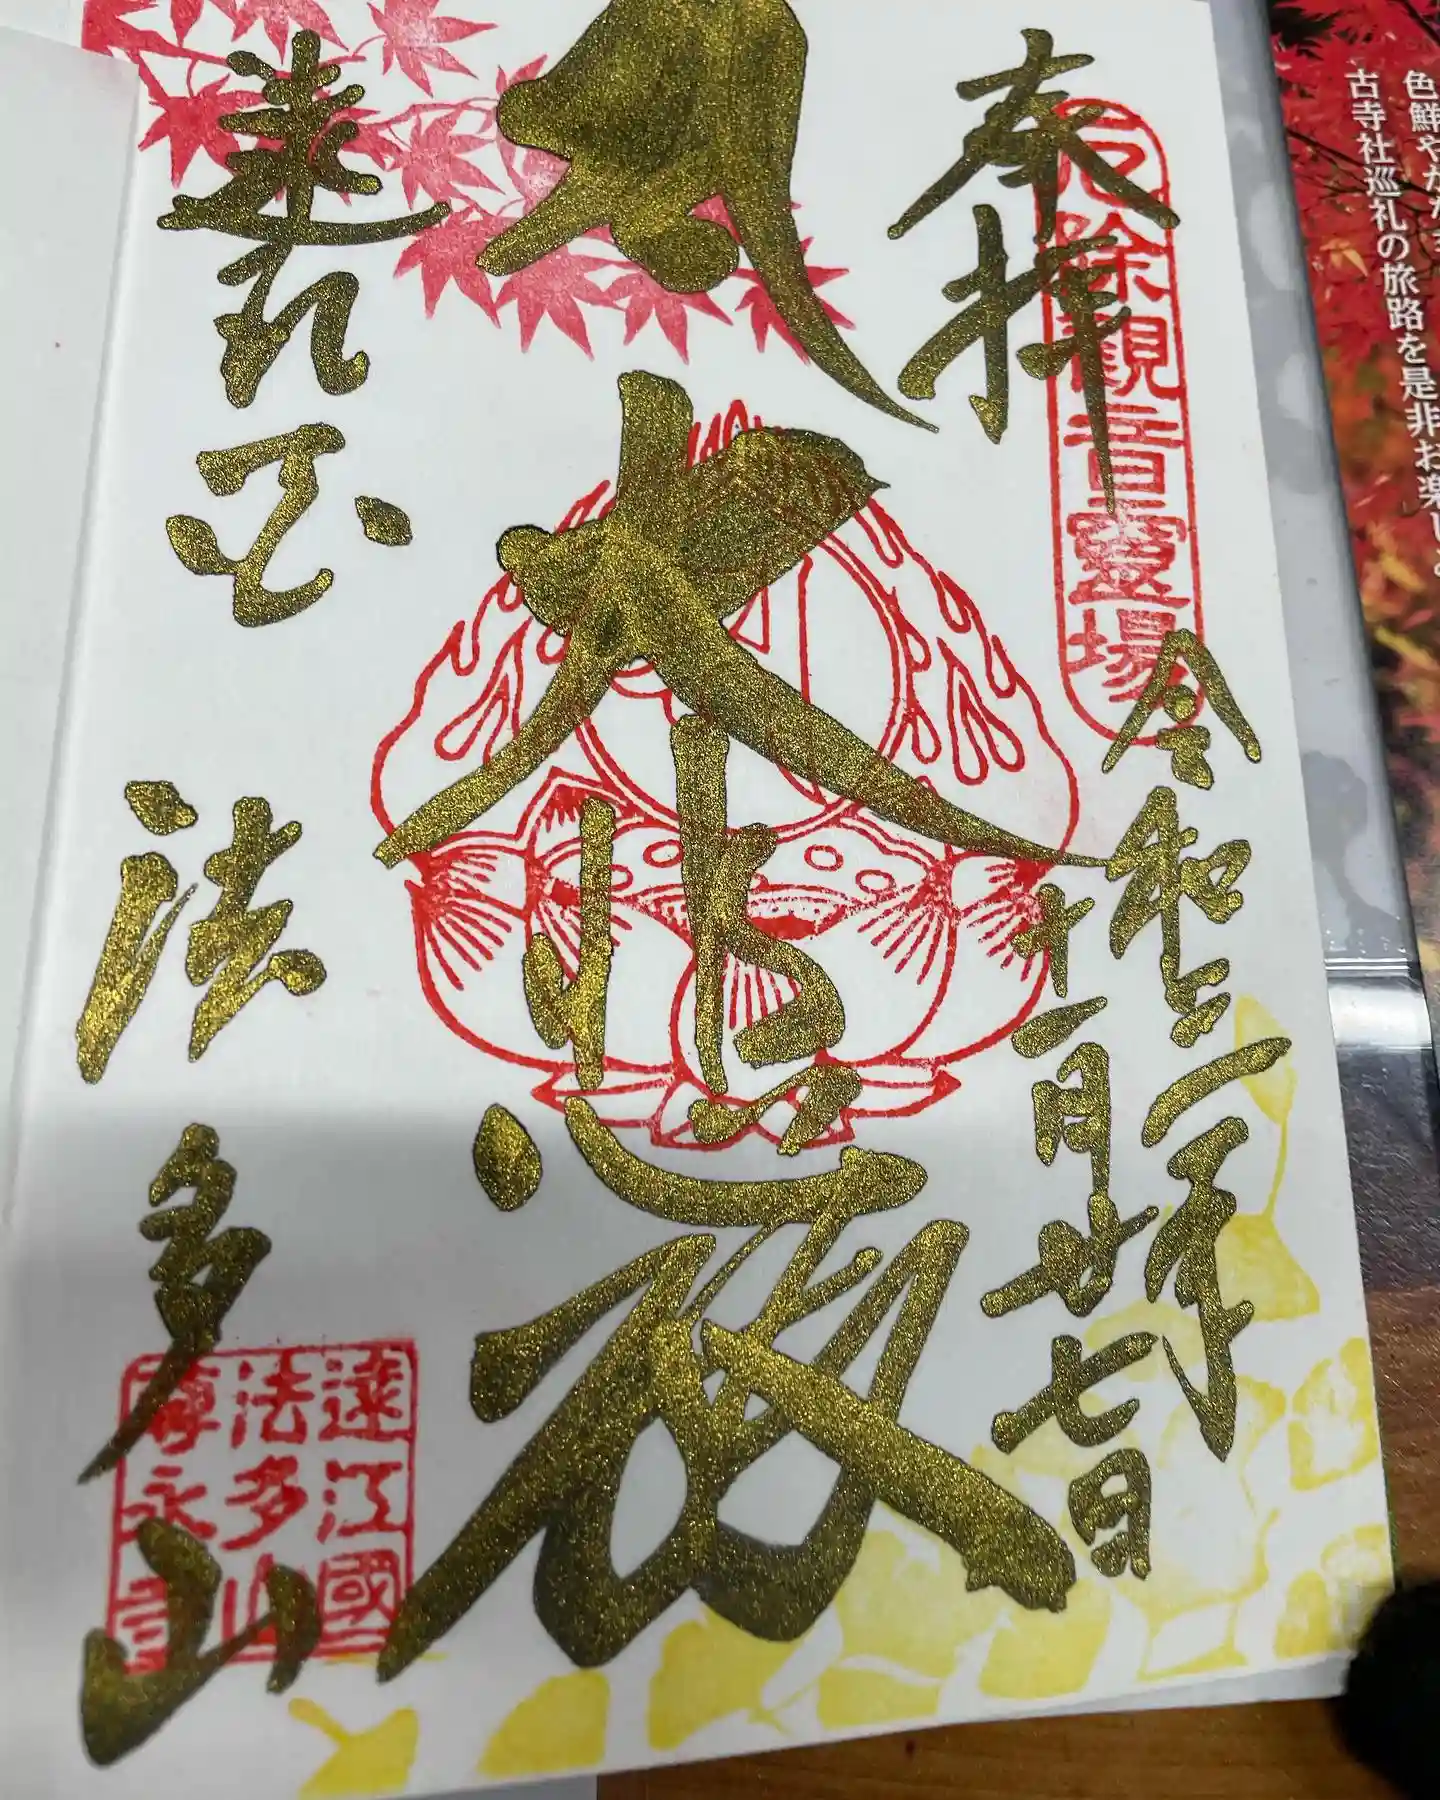 奉拝
厄除観音霊場
令和三年
十一月廿七日
大悲殿
遠江国
法多山
遠江國
法多山
尊永寺
色鮮やか
古寺社巡礼の旅路を是非お楽し